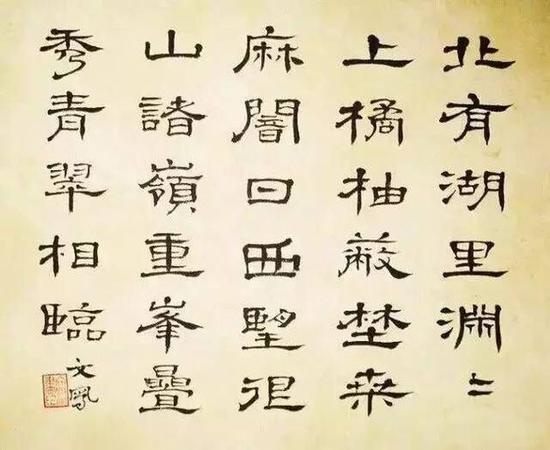 北有湖里淵〻
上橘柚蔽埜桒
麻闇日西望很
山諸嶺重峯疊
秀青翠相臨
文鳳